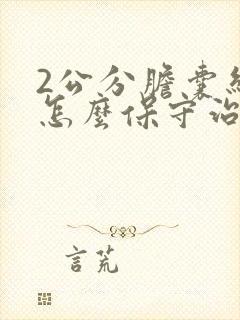 2公分膽囊
怎麼保守治
言荒